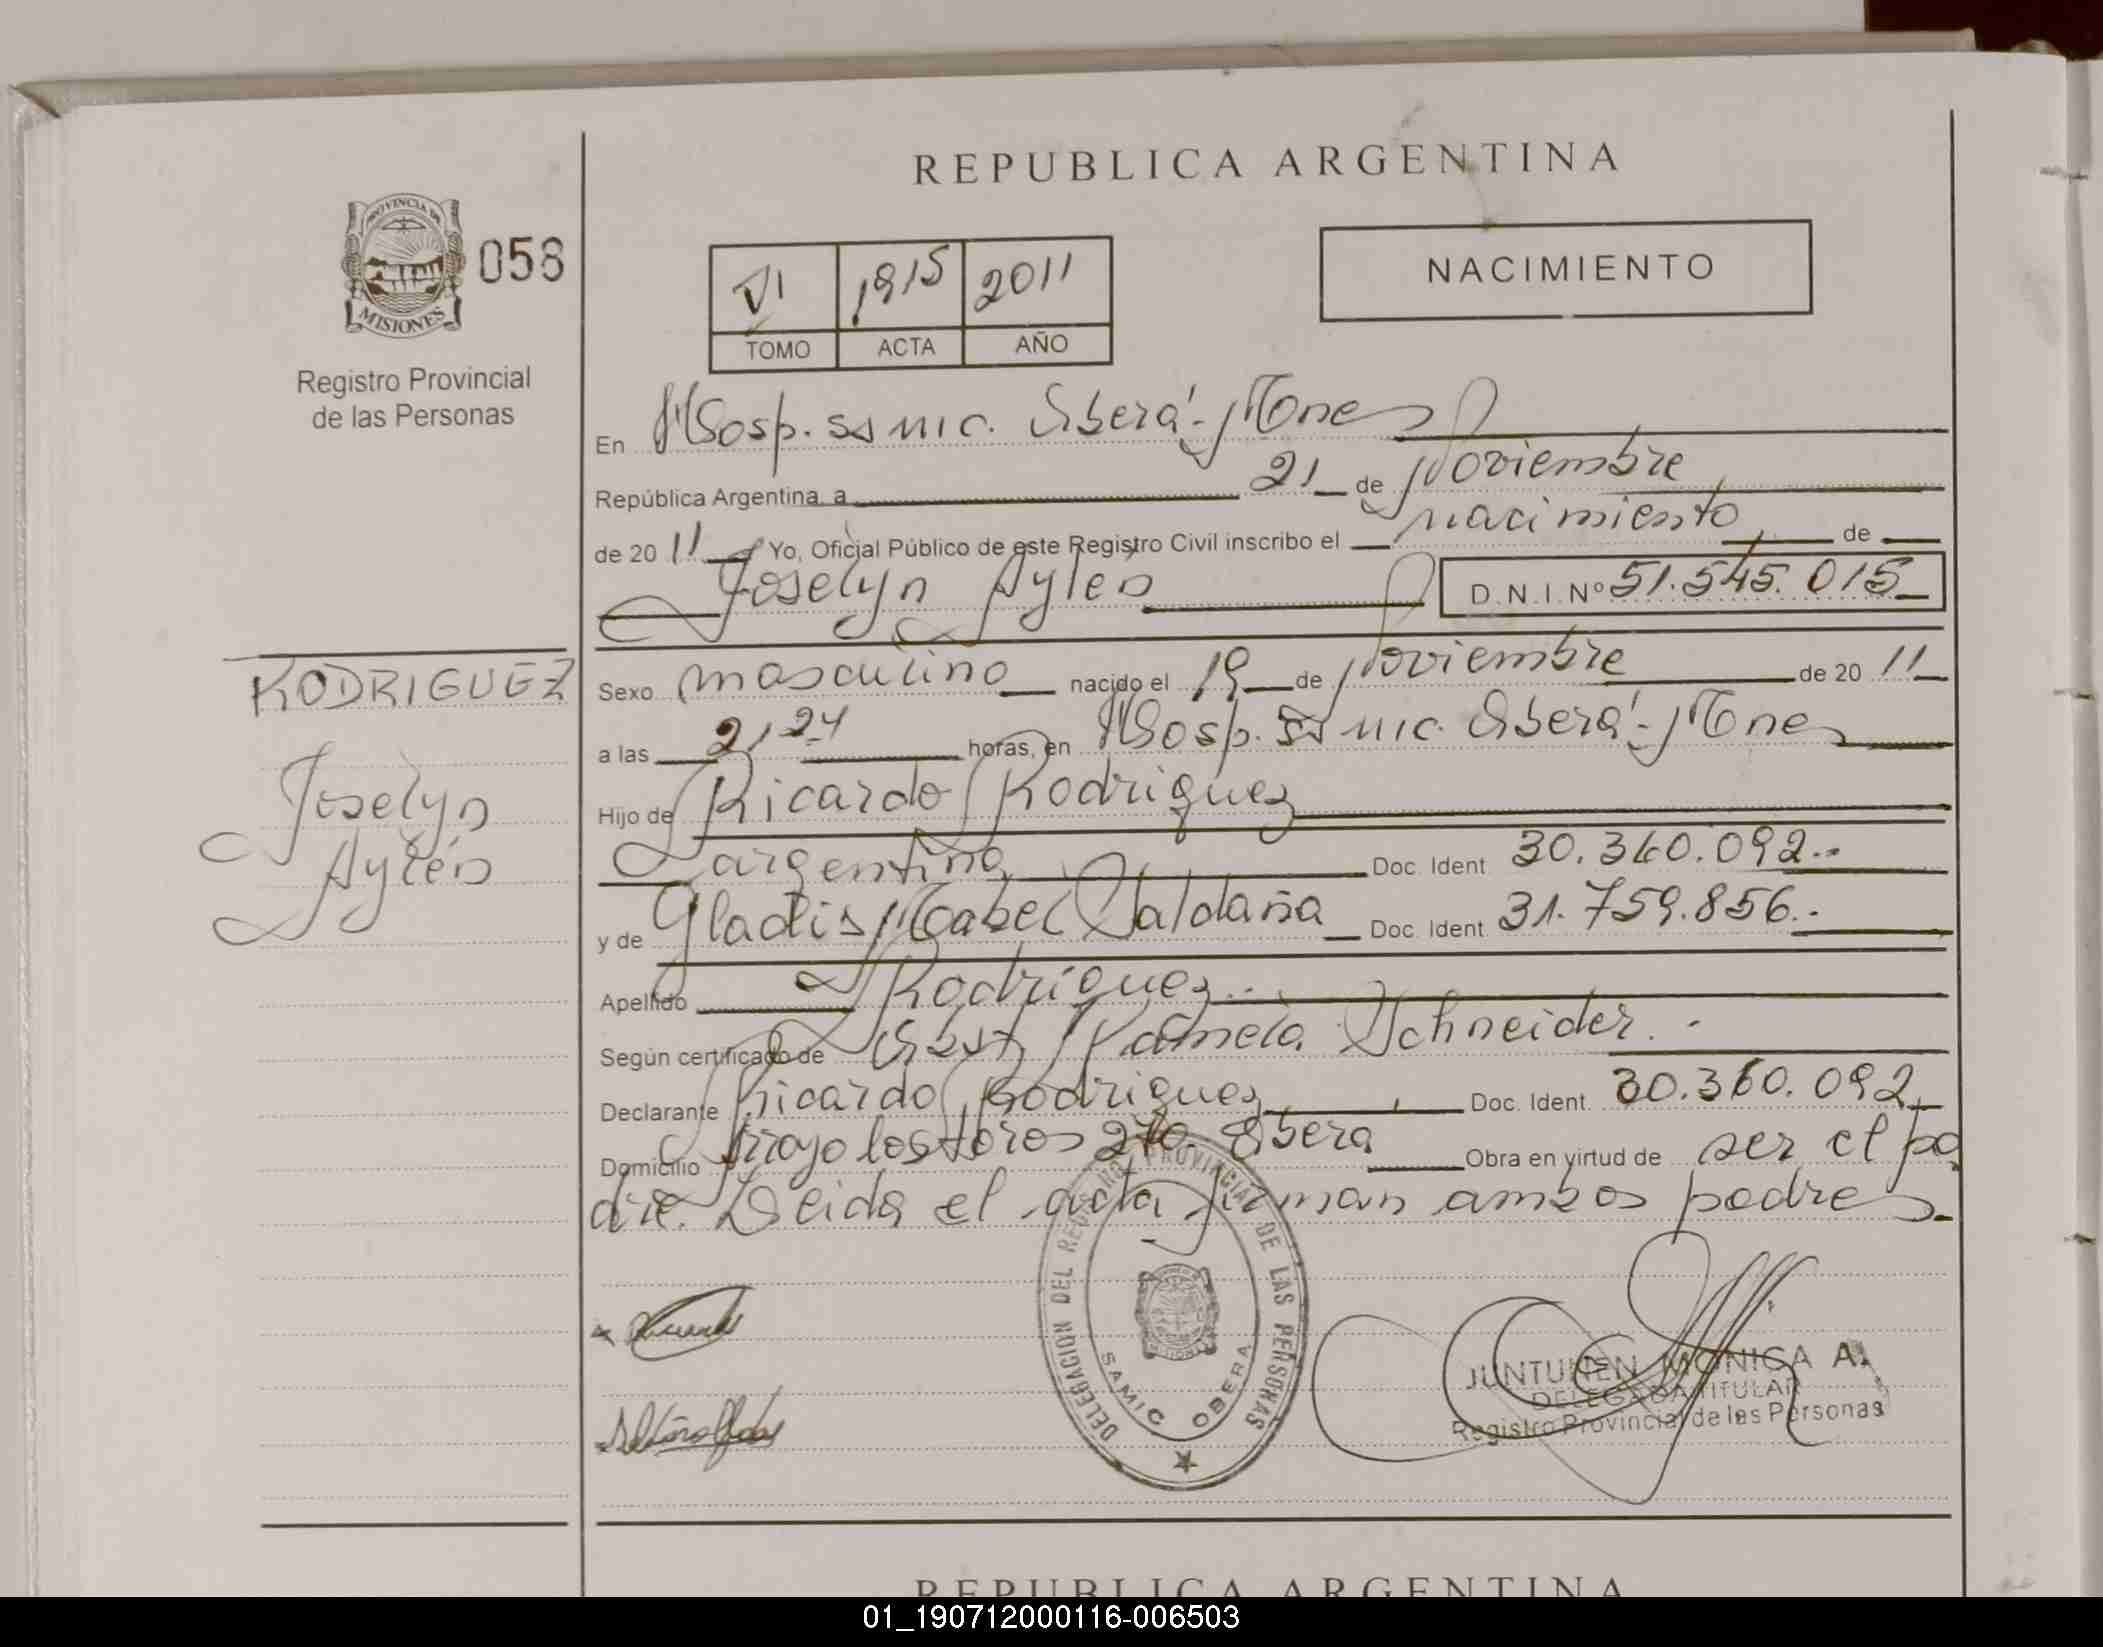 REPUBLICA ARGENTINA
PROVINCIA DE
MISIONES
058
Registro Provincial
de las Personas
VI 1915 2011
TOMO ACTA AÑO
NACIMIENTO
En Hosp. ssmic. Oberá - Mnes
República Argentina, a 21 de Noviembre
de 20 11 Yo, Oficial Público de este Registro Civil inscribo el nacimiento de
Joselyn Aylén D.N.I. Nº 51.545.015
RODRIGUEZ
Joselyn
Aylén
Sexo masculino nacido el 19 de Noviembre de 20 11
a las 21,24 horas, en Hosp. ssmic. Oberá - Mnes
Hijo de Ricardo Rodriguez
argentina Doc. Ident. 30.360.092.-
y de Gladis Mabel Saldaña Doc. Ident. 31.759.856.-
Apellido Rodríguez.-
Según certificado de Obst. Pamela Schneider.-
Declarante Ricardo Rodriguez, Doc. Ident. 30.360.092
Domicilio Arroyo los toros 270 Oberá Obra en virtud de ser el pa
dre. Leida el acta firman ambos padres.
DELEGACION DEL REGISTRO PROVINCIAL DE LAS PERSONAS
SAMIC OBERA
JUNTUNEN MONICA A.
DELEGADA TITULAR
Registro Provincial de las Personas
REPUBLICA ARGENTINA
01_190712000116-006503